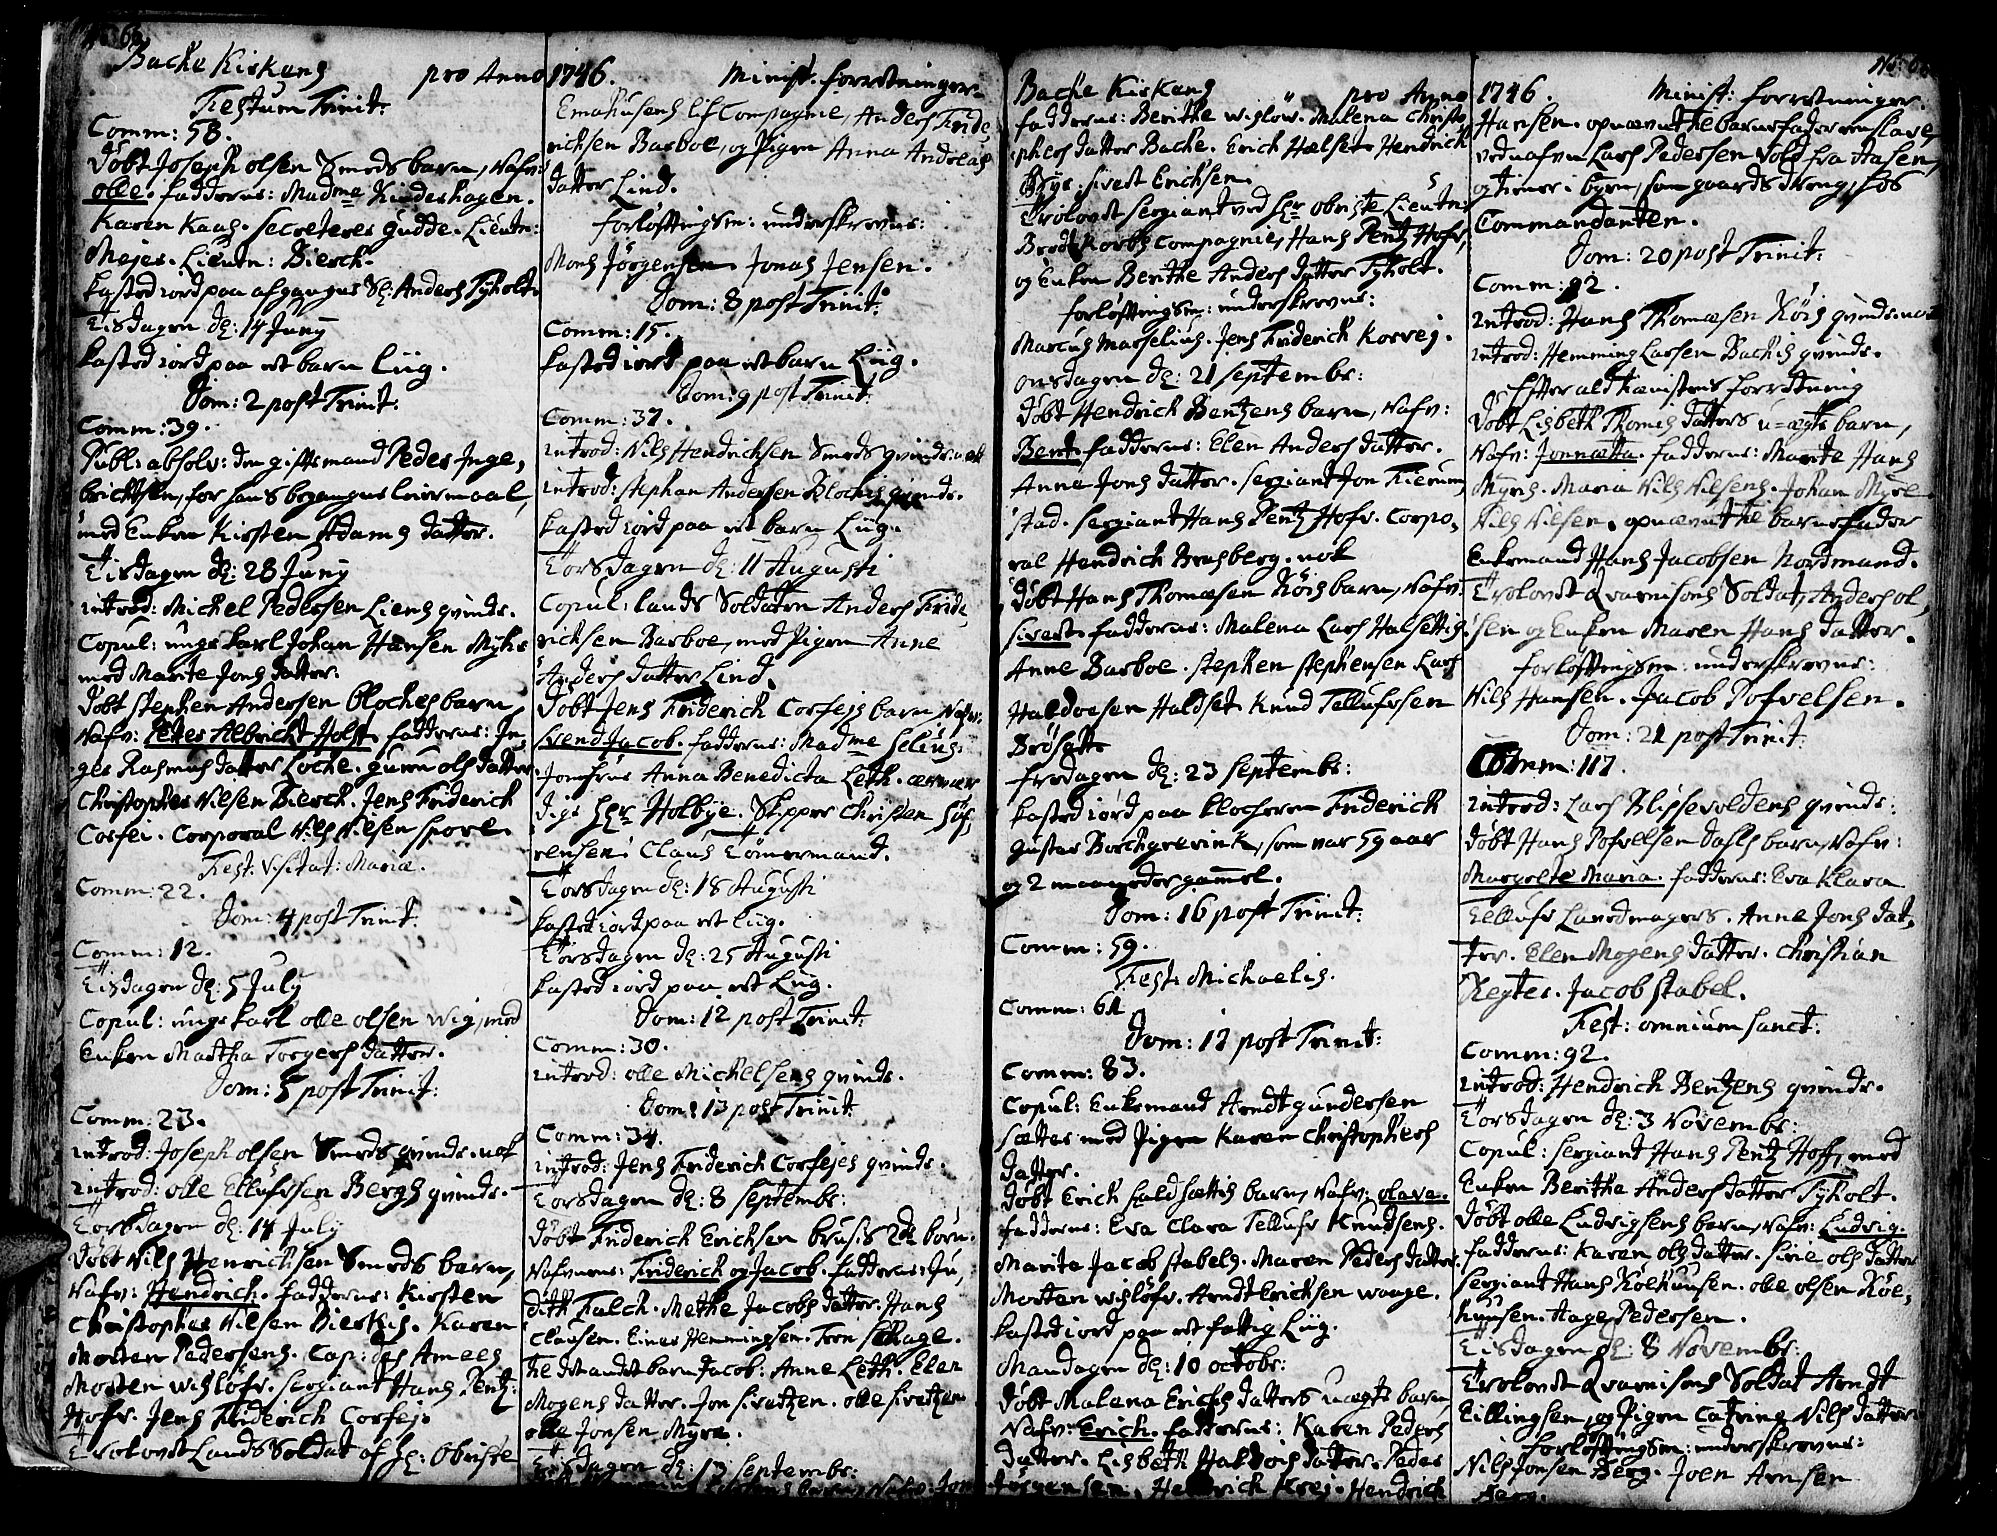 Bache Kirkens pro Anno 1746. Minist. forretninger.
Festum Trinit:
Comm: 58.
Döbt Joseph olsen Smeds barn, Nafv:
olle. fadderne: Madme Kindeshagen.
Karen Kaas. Secreterer Gudde. Lieutn:
Mejer. Lieutn: Bierch.
kasted iord paa afgangne Sl: Anders Tyholt.
Tisdagen d: 14 Juny
kasted iord paa et barn Liig.
Dom: 2 post Trinit:
Comm: 39.
Publ: absolv: den gifte mand Peder Inge,
brichtsen, for hans begangne leiermaal,
med Enken Kirsten Adams datter.
Tisdagen d: 28 Juny
introd: Michel Pedersen Liens qvinde.
Copul: unge karl Johan Hansen Myhr
med Marite Jons datter.
Döbt Stephen Andersen Bloches barn
Nafv: Peter Albricht Holst. fadderne: In,
ger Rasmus datter Loche. Guru ols datter.
Christopher Nilsen Bierch. Jens Friderich
Corfei. Corporal Nils Nilsen Spore.
Fest: Visitat: Mariæ.
Comm: 22.
Dom: 4 post Trinit:
Comm: 12.
Tisdagen d: 5 July
Copul: unge karl olle olsen Wig, med
Enken Martha Torgers datter.
Dom: 5 post Trinit:
Comm: 23.
introd: Joseph olsen Smeds qvinde. nok
introd: olle Ellufssen Bergs qvinde.
Torsdagen d: 14 July
Döbt Nils Henrichsen Smeds barn,
Nafv: Hendrich. fadderne: Kirsten
Christopher Nilsen Bierchis. Karen
Morten Pedersens. Cap: des Amees
Morten Wislöfv. Sergiant Hans Pentz
Hofv. Jens Friderich Corfej.
Trolovet Lands Soldat af Hr: Obriste
Emahusens Lif Compagnie, Anders Fride,
richsen Barboe, og Pigen Anna Andreas
datter Lind.
forlöftningsm: underskrevne:
Mons Jörgensen. Jonas Jensen.
Dom: 8 post Trinit:
Comm: 15.
kasted iord paa et barn Liig.
Dom: 9 post Trinit:
Comm: 37.
introd: Nils Hendrichsen Smeds qvinde. nok
introd: Stephan Andersen Blochis qvinde.
kasted iord paa et barn Liig.
Torsdagen d: 11 Augusti
Copul: lands Soldaten Anders Fride,
richsen Barboe, med Pigen Anne
Anders datter Lind.
Döbt Jens Friderich Corfejs barn, Nafv:
Svend Jacob. fadderne: Madme Selius.
Jomfrue Anna Benedicta Leth. ærvær
dige Hr Holbye. Skipper Christen Söf,
rensen. Claus Tömermand.
Torsdagen d: 18 Augusti
kasted iord paa et Liig.
Torsdagen d: 25 Augusti
kasted iord paa et Liig.
Dom: 12 post Trinit:
Comm: 30.
introd: olle Michelsens qvinde.
Dom: 13 post Trinit:
Comm: 34.
introd: Jens Friderich Corfejes qvinde.
Torsdagen d: 8 Septembr:
Döbt Friderich Erichsen brusis 2de börn.
Nafvnene: Friderich og Jacob. fadderne: Ju,
dith Falch. Methe Jacobs datter. Hans
Clausen. Einer Hemmingsen. Tron Schage.
Til det andet barn Jacob: Anne Leth. Elen
Mogens datter. Jon Sivertzen. olle Sivertzen
olle Jonsen Myre.
Tisdagen d: 13 Septembr:
Bache Kirkens pro Anno 1746. Minist: forretninger.
fadderne: Berithe Wislöw. Malena Christo
phers datter Bache. Erich Halset. Hendrich
Brys. Sivert Erichsen.
Trolovet Sergiant ved Hr Obriste Lieutn:
Brodtkorbs Compagnie, Hans Pentz Hofv,
og Enken Berithe Anders datter Tyholt.
forlöftningsm: underskrevne:
Marcus Marselius. Jens Friderich Korvej.
onsdagen d: 21 Septembr:
Döbt Hendrich Bentzens barn, Nafv:
Bent. fadderne: Elen Anders datter.
Anne Jons datter. Sergiant Jon Fierum,
stad. Sergiant Hans Pentz Hofv. Corpo,
ral Hendrich Brasberg. nok
Döbt Hans Thomæsen Röis barn, Nafv:
Sivert. fadderne: Malena Lars Halsettis.
Anne Barboe. Stephen Stephensen Lars
Haldorsen Haldset. Knud Tellufssen
Brösette
fredagen d: 23 Septembr:
kasted iord paa Klocheren Friderich
Guster Borchgrevink, som var 59 aar
og 2 maaneder gammel.
Dom: 16 post Trinit:
Comm: 59.
Fest: Michaelis.
Comm: 61
Dom: 17 post Trinit:
Comm: 83.
Copul: Enkemand Arndt Gundersen
Sætter med Pigen Karen Christophers
datter.
Döbt Erich Haldsættis barn, Nafv: olava.
fadderne: Eva Clara Tellufv Knudsens.
Marita Jacob Stabels. Maren Peders datter.
Morten Wislöfv. Arndt Erichsen Waage.
kasted iord paa et fattig Liig.
Mandagen d: 10 octobr:
Döbt Malena Erichs datters uægte barn
Nafv: Erich. fadderne: Karen Peders
datter. Lisbeth Haldois datter. Peder
Jörgensen. Hendrich Krej. Hendrich
Hansen. opnævnte barnefader en slave,
ved nafvn Lars Pedersen Vold fra Aasen,
og tiener i byen, som gaards dreng, hos
Commandanten.
Dom: 20 post Trinit:
Comm: 92.
introd: Hans Thomæsen Röis qvinde. nok
introd: Hemming Larsen Bachis qvinde.
og Efter aldtænistens forretning
Döbt Lisbeth Thomes datters u-ægte barn,
Nafv: Jonnætta. fadderne: Marite Hans
Myris. Maria Nils Nilsens. Johan Myre.
Nils Nilsen. opnævnte barnefader
Enkemand Hans Jacobsen Nordmand.
Trolovet Qvarnisons Soldat, Anders ol,
sen og Enken Maren Hans datter.
forlöftningsm: underskrevne:
Nils Hansen. Jacob Pofvelsen.
Dom: 21 post Trinit:
Comm: 117.
introd: Lars Blissevoldens qvinde.
Döbt Hans Pofvelsen Dahls barn, Nafv:
Margrete Maria. fadderne: Eva Klara
Tellufv Lavedmagers. Anne Jons dat,
ter. Elen Mogens datter. Christian
Regter. Jacob Stabel.
Fest: omnium Sanct:
Comm: 92.
introd: Hendrich Bentzens qvinde.
Torsdagen d: 3 Novembr:
Copul: Sergiant Hans Pentz Hoff, med
Enken Beritha Anders datter Tyholt.
Döbt olle Ludvigsens barn, Nafv: Ludvig.
fadderne: Karen ols datter. Sirie ols datter
Sergiant Hans Röekunsen. olle olsen Röe,
kunsen. Aage Pedersen.
Tisdagen d: 8 Novembr:
Trolovet Qvarnisons Soldat Arndt
Eillingsen, og Pigen Catrina Nils datter.
forlöftningsm: underskrevne:
Nils Jonsen Berg. Joen Arnsen
Berg.